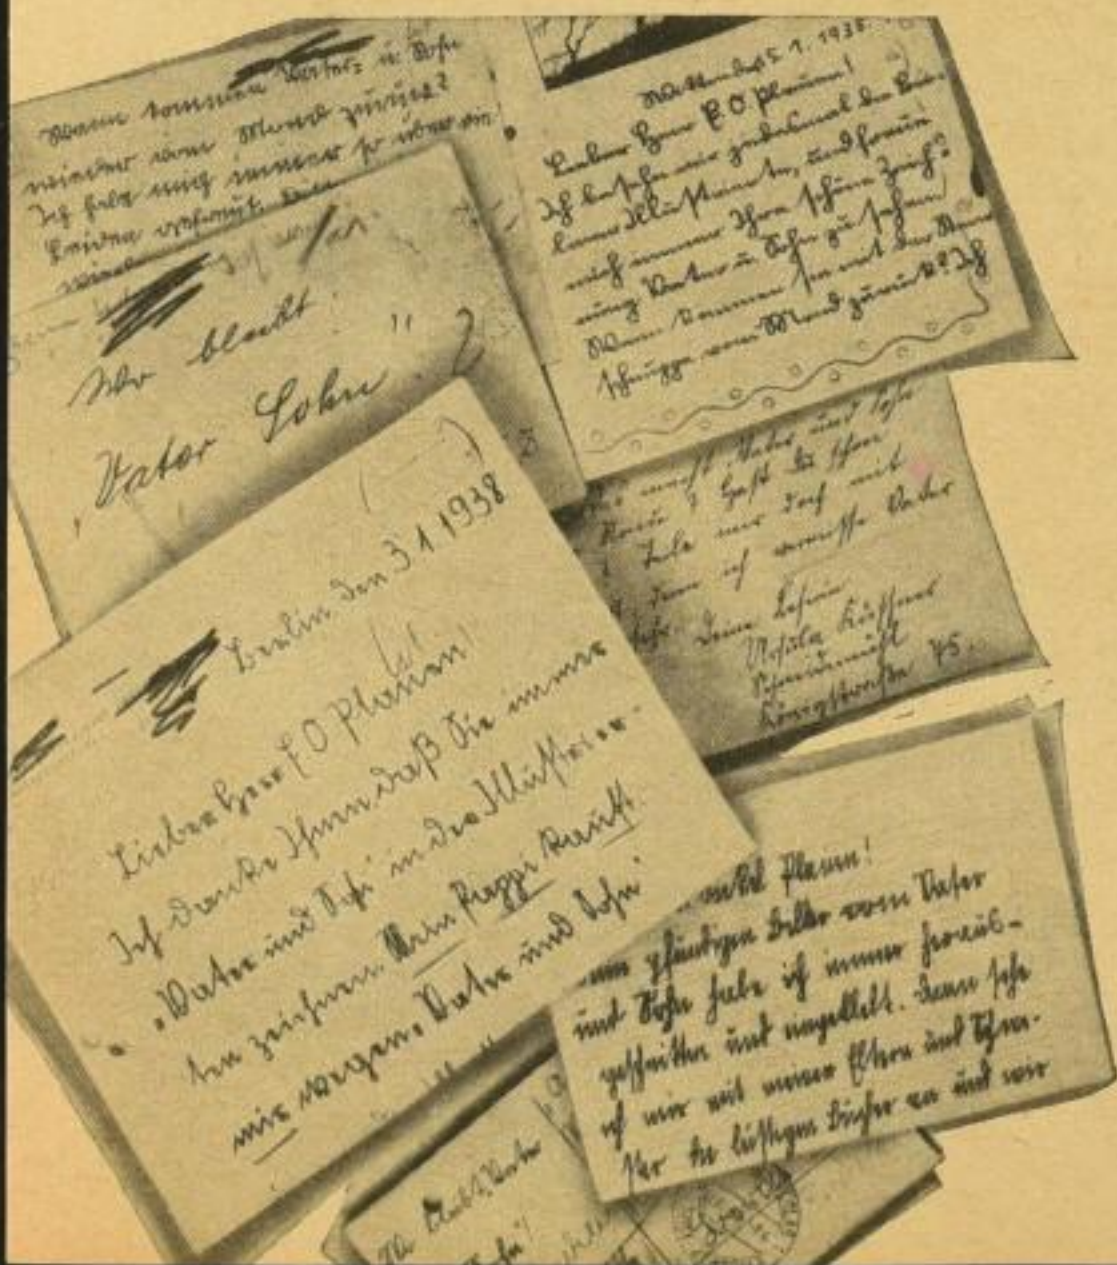 Vater u. Sohn
Wann kommen
wieder vom Mond zurück?
Ich habe mich immer so über die
beiden gefreut.
Wo bleibt
„Vater Sohn" ?
Wattendorf 5. 1. 1938.
Lieber Herr E O Plauen!
Ich besehe mir jedesmal die Ber-
liner Illustrierte, und freue
mich immer Ihre schöne Zeich-
nung Vater u. Sohn zu sehen
Wann kommen sie mit der Stern
schnuppe vom Mond zurück? Ich
macht Vater und Sohn
Hast Du schon
Teile mir doch mit
denn ich vermisse Vater
sehr. Deine Leserin
Ursula
Schneidemühl
Königstraße 75.
Berlin den 3 1 1938
Lieber Herr E O Plauen!
Ich danke Ihnen daß Sie immer
„Vater und Sohn" in der Illustrier-
ten zeichnen. Mein Pappi kauft
mir wegen „Vater und Sohn"
Onkel Plauen!
pfundigen Bilder vom Vater
und Sohn habe ich immer heraus-
geschnitten und eingeklebt. Dann sehe
ich mir mit meinen Eltern und Schwe-
ster die lustigen Bücher an und wir